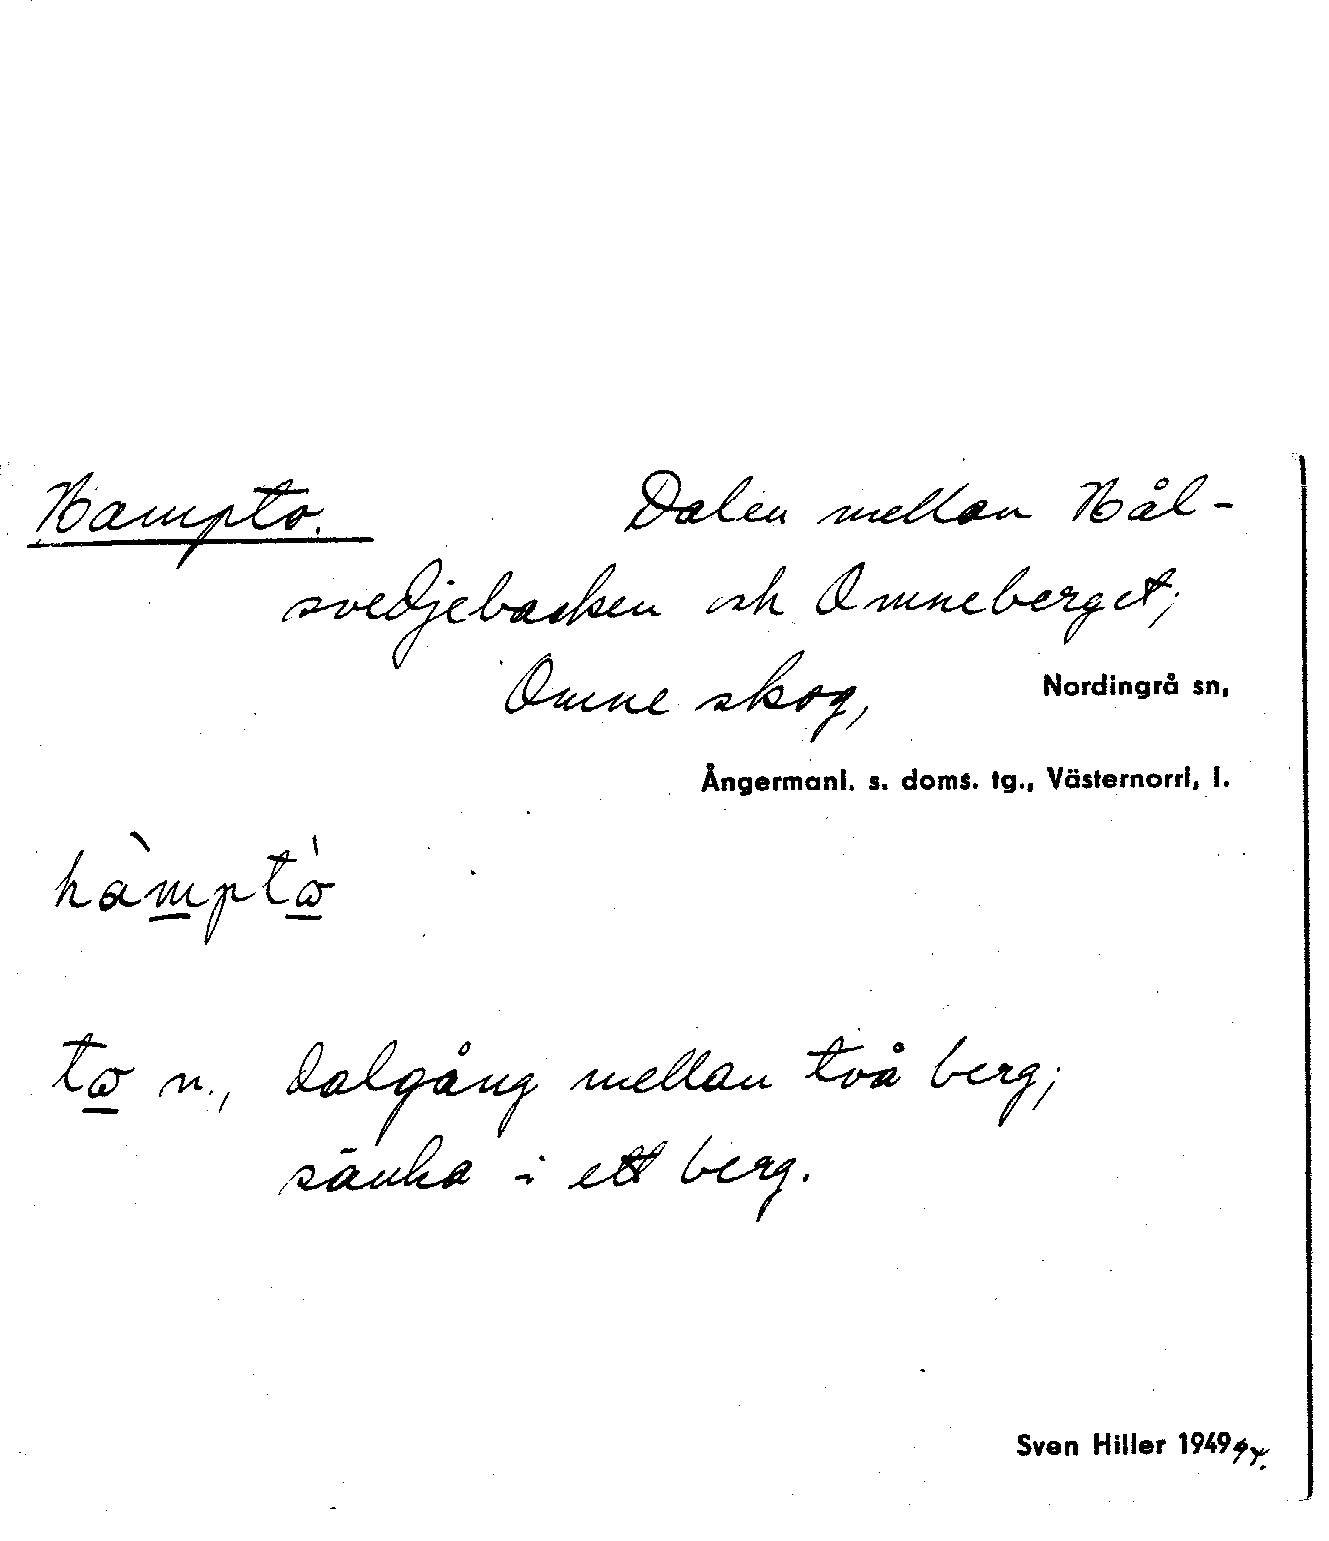 Hampto. Dalen mellan Hål-
svedjebacken och Omneberget;
Omne skog, Nordingrå sn,
Ångermanl. s. doms. tg., Västernorrl. l.
hàmptò
to n., dalgång mellan två berg;
sänka i ett berg.
Sven Hiller 1949